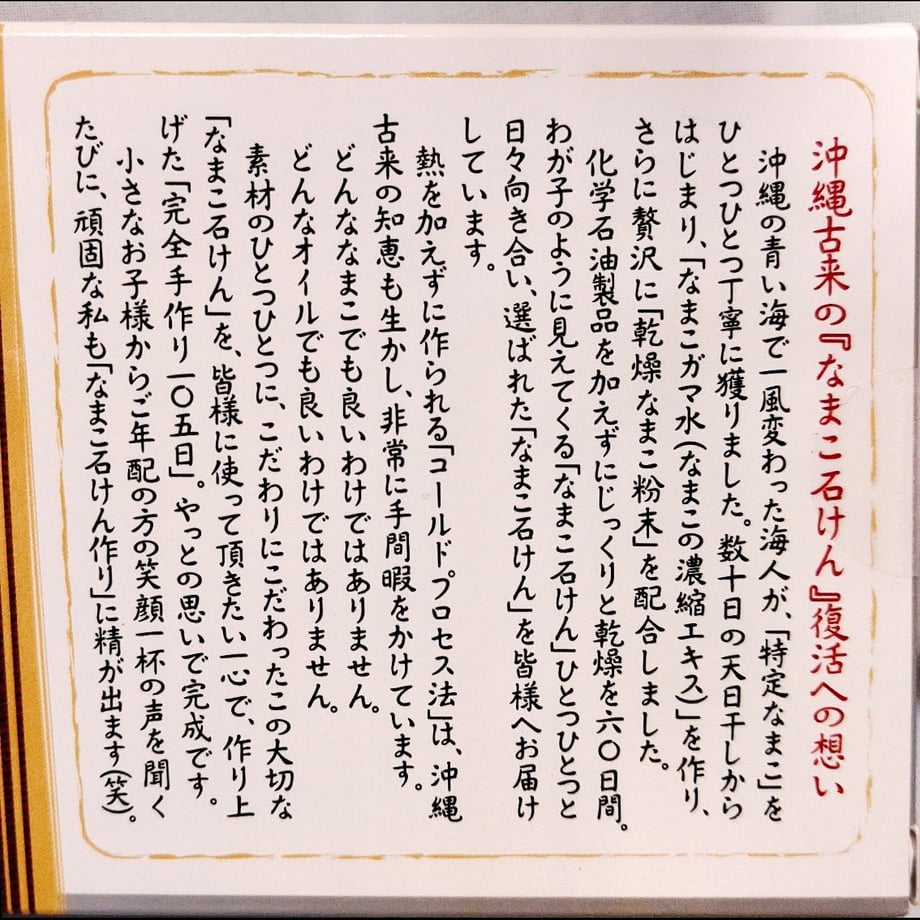 沖縄古来の『なまこ石けん』復活への想い
沖縄の青い海で一風変わった海人が、「特定なまこ」を
ひとつひとつ丁寧に獲りました。数十日の天日干しから
はじまり、「なまこガマ水(なまこの濃縮エキス)」を作り、
さらに贅沢に「乾燥なまこ粉末」を配合しました。
化学石油製品を加えずにじっくりと乾燥を六〇日間。
わが子のように見えてくる「なまこ石けん」ひとつひとつと
日々向き合い、選ばれた「なまこ石けん」を皆様へお届け
しています。
熱を加えずに作られる「コールドプロセス法」は、沖縄
古来の知恵も生かし、非常に手間暇をかけています。
どんななまこでも良いわけではありません。
どんなオイルでも良いわけではありません。
素材のひとつひとつに、こだわりにこだわったこの大切な
「なまこ石けん」を、皆様に使って頂きたい一心で、作り上
げた「完全手作り一〇五日」。やっとの思いで完成です。
小さなお子様からご年配の方の笑顔一杯の声を聞く
たびに、頑固な私も「なまこ石けん作り」に精が出ます(笑)。